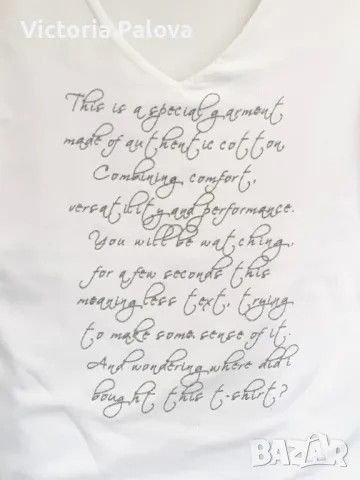 Victoria Palova
This is a special garment
made of authentic cotton
Combining comfort,
versatility and performance.
You will be watching,
for a few seconds this
meaningless text, trying
to make some sense of it.
And wondering where did i
bought this t-shirt?
BAZAR
bg